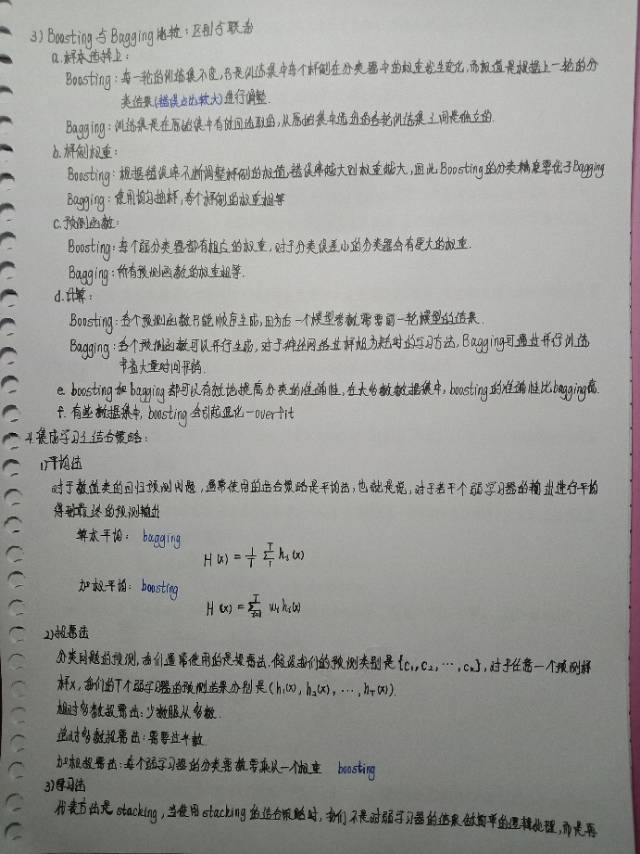 3) Boosting与Bagging比较:区别与联系
a.样本选择上:
Boosting:每一轮的训练集不变,只是训练集中每个样例在分类器中的权重发生变化,而权值是根据上一轮的分
类结果(错误占比较大)进行调整.
Bagging:训练集是在原始集中有放回选取的,从原始集中选出的各轮训练集之间是独立的.
b.样例权重:
Boosting:根据错误率不断调整样例的权值,错误率越大则权重越大,因此Boosting的分类精度要优于Bagging
Bagging:使用均匀抽样,每个样例的权重相等
c.预测函数:
Boosting:每个弱分类器都有相应的权重,对于分类误差小的分类器会有更大的权重.
Bagging:所有预测函数的权重相等.
d.计算:
Boosting:各个预测函数只能顺序生成,因为后一个模型参数需要前一轮模型的结果.
Bagging:各个预测函数可以并行生成,对于神经网络这样极为耗时的学习方法,Bagging可通过并行训练
节省大量时间开销.
e. boosting和bagging都可以有效地提高分类的准确性,在大多数数据集中,boosting的准确性比bagging高.
f. 有些数据集中,boosting会引起退化—overfit
4.集成学习之结合策略:
1)平均法
对于数值类的回归预测问题,通常使用的结合策略是平均法,也就是说,对于若干个弱学习器的输出进行平均
得到最终的预测输出
算术平均: bagging
H(x) = 1/T Σ hi(x)
加权平均: boosting
H(x) = Σ wi hi(x)
2)投票法
分类问题的预测,我们通常使用的是投票法.假设我们的预测类别是{c₁,c₂,…,cₖ},对于任意一个预测样
样x,我们的T个弱学习器的预测结果分别是(h₁(x), h₂(x), …, hT(x)).
相对多数投票法:少数服从多数.
绝对多数投票法:需要过半数.
加权投票法:每个弱学习器的分类票数要乘以一个权重 boosting
3)学习法
代表方法是stacking,当使用stacking的结合策略时,我们不是对弱学习器的结果做简单的逻辑处理,而是再